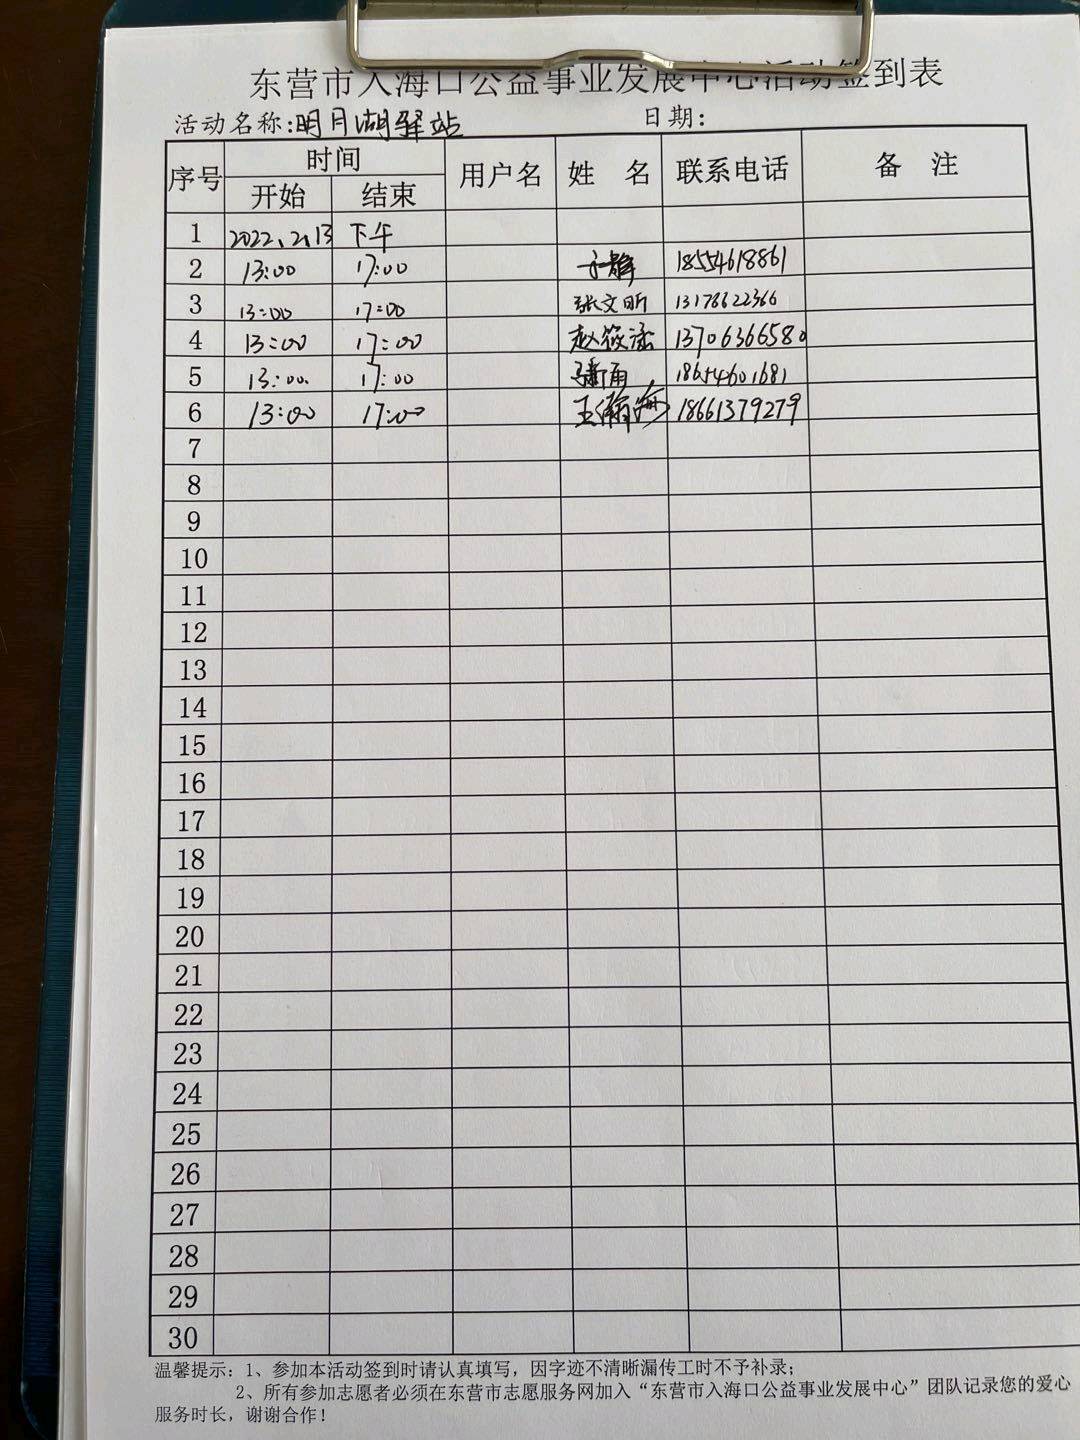 东营市入海口公益事业发展中心活动签到表
活动名称:明月湖驿站 日期:
序号 时间 用户名 姓 名 联系电话 备 注
开始 结束
1 2022、2、13 下午
2 13:00 17:00 18554618861
3 13:00 17:00 张文昕 13178622366
4 13:00 17:00 赵筱涵 13706366580
5 13:00 17:00 18654601681
6 13:00 17:00 王瀚海 18661379279
7
8
9
10
11
12
13
14
15
16
17
18
19
20
21
22
23
24
25
26
27
28
29
30
温馨提示: 1、参加本活动签到时请认真填写，因字迹不清晰漏传工时不予补录；
2、所有参加志愿者必须在东营市志愿服务网加入“东营市入海口公益事业发展中心”团队记录您的爱心
服务时长，谢谢合作！